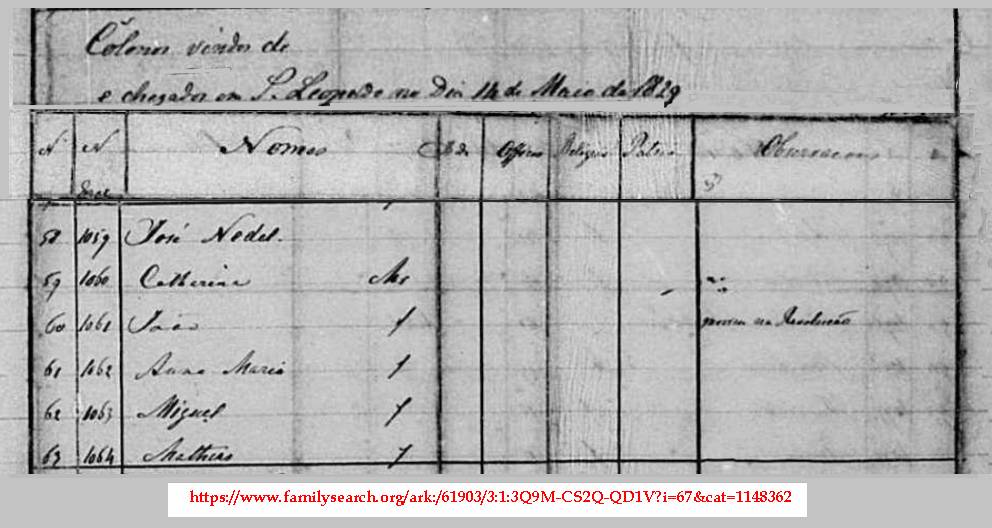 Colonos vindos de
e chegados em S. Leopoldo no Dia 14 de Maio de 1829
N N Geral Nomes Id. Officio Religião Patria Observacoens
53
58 1059 José Nedel.
59 1060 Catharina Mr
60 1061 João f morreu na Revolução
61 1062 Anna Maria f
62 1063 Miguel f
63 1064 Matheus f
https://www.familysearch.org/ark:/61903/3:1:3Q9M-CS2Q-QD1V?i=67&cat=1148362